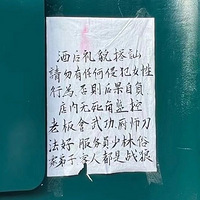 酒后礼貌搭訕
請勿有任何侵犯女性
行為、否則后果自負
店内无死角監控
老板會武功、厨师刀
法好 服务員少林俗
家弟子 客人都是战狼